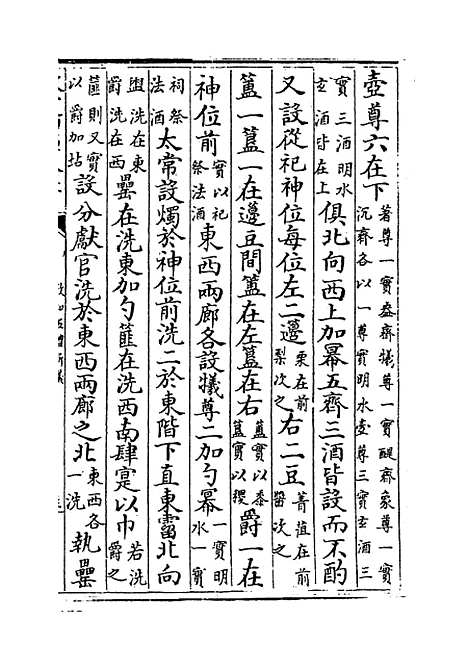 壺尊六在下著尊一實盎齊犧尊一實醍齊象尊一實沉齊各以一尊實明水壺尊三實玄酒三
實三酒明水玄酒皆在上俱北向西上加冪五齊三酒皆設而不酌
又設從祀神位每位左二籩栗在前梨次之右二豆菁葅在前醤次之
簠一簋一在籩豆間簠在左簋在右簠實以黍簋實以稷爵一在
神位前實以祀祭法酒東西兩廊各設犧尊二加勺冪一實明水一實
祠祭法酒太常設燭於神位前洗二於東階下直東霤北向
盥洗在東爵洗在西罍在洗東加勺篚在洗西南肆寔以巾若洗爵之
篚則又實以爵加坫設分獻官洗於東西兩廊之北東西各一洗執罍